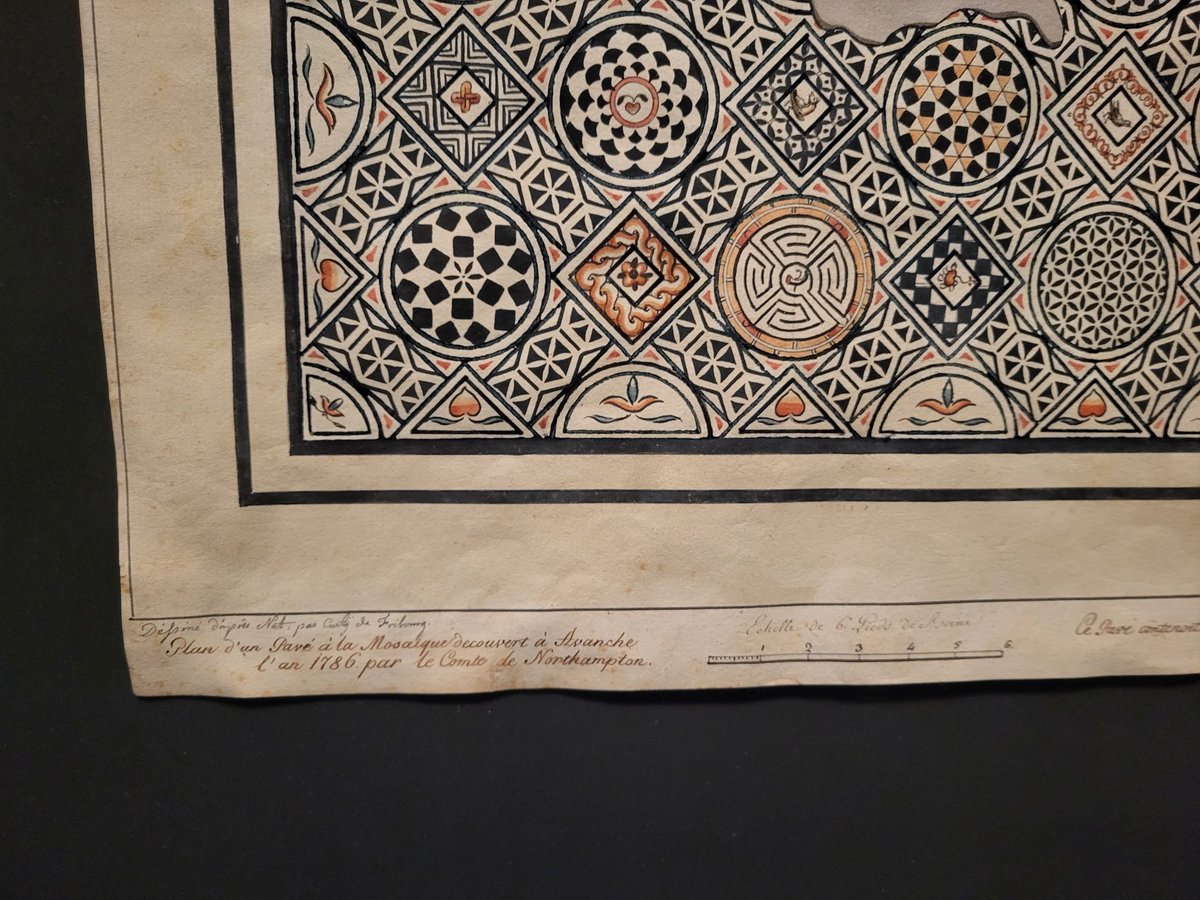 Déssiné d'après Nat. par Curty de Fribourg.
Plan d'un Pavé à la Mosaïque decouvert à Avanche
l'an 1786. par le Comte de Northampton.
Echelle de 6. Pieds de
1 2 3 4 5 6
Ce Pavé